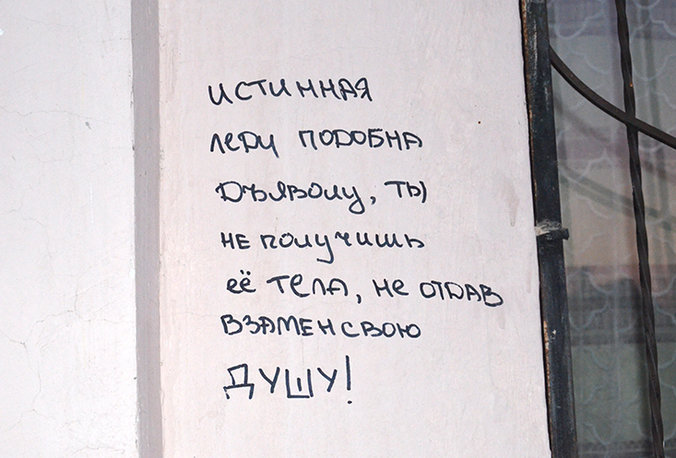 ИСТИННАЯ
ЛЕДИ ПОДОБНА
ДЪЯВОЛУ, ТЫ
НЕ ПОЛУЧИШЬ
ЕЁ ТЕЛА, НЕ ОТДАВ
ВЗАМЕН СВОЮ
ДУШУ!